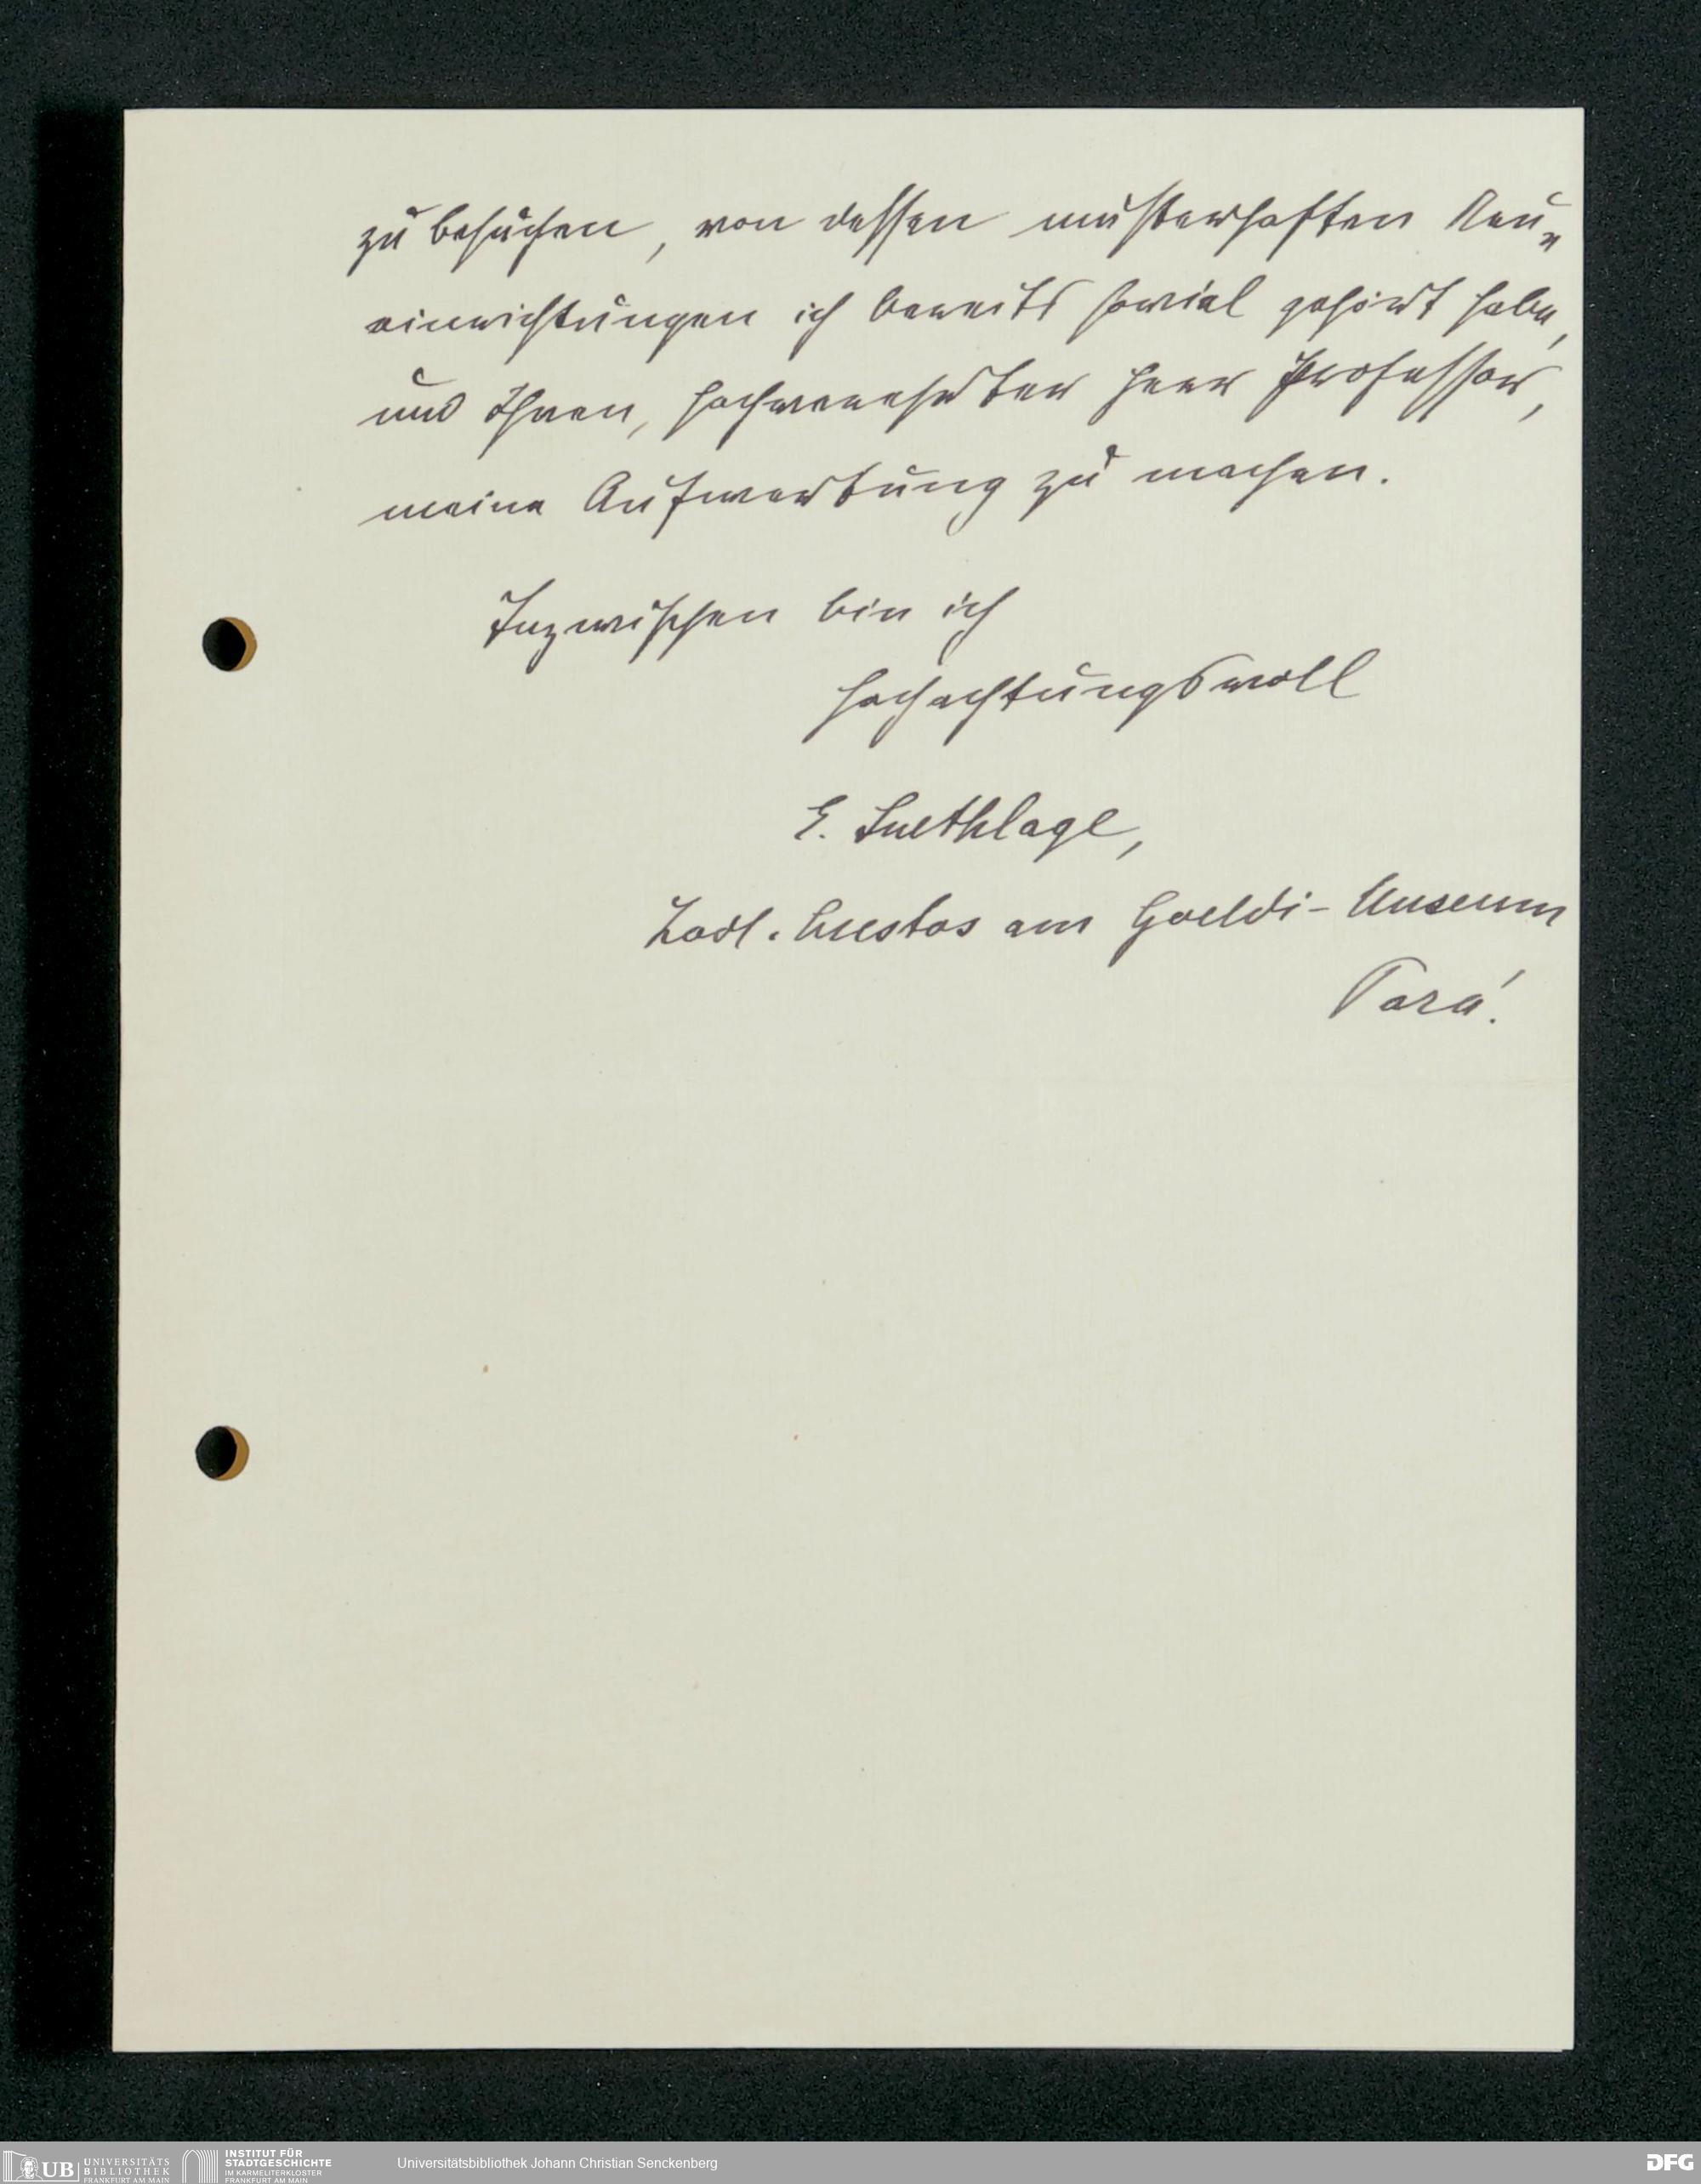 zu besuchen, von dessen musterhaften Neu-
einrichtungen ich bereits soviel gehört habe,
und Ihnen, hochverehrter Herr Professor,
meine Aufwartung zu machen.
Inzwischen bin ich
hochachtungsvoll
E. Snethlage,
Zool. Custos am Goeldi-Museum
Pará.
UB
UNIVERSITÄTS
BIBLIOTHEK
FRANKFURT AM MAIN
INSTITUT FÜR
STADTGESCHICHTE
IM KARMELITERKLOSTER
FRANKFURT AM MAIN
Universitätsbibliothek Johann Christian Senckenberg
DFG